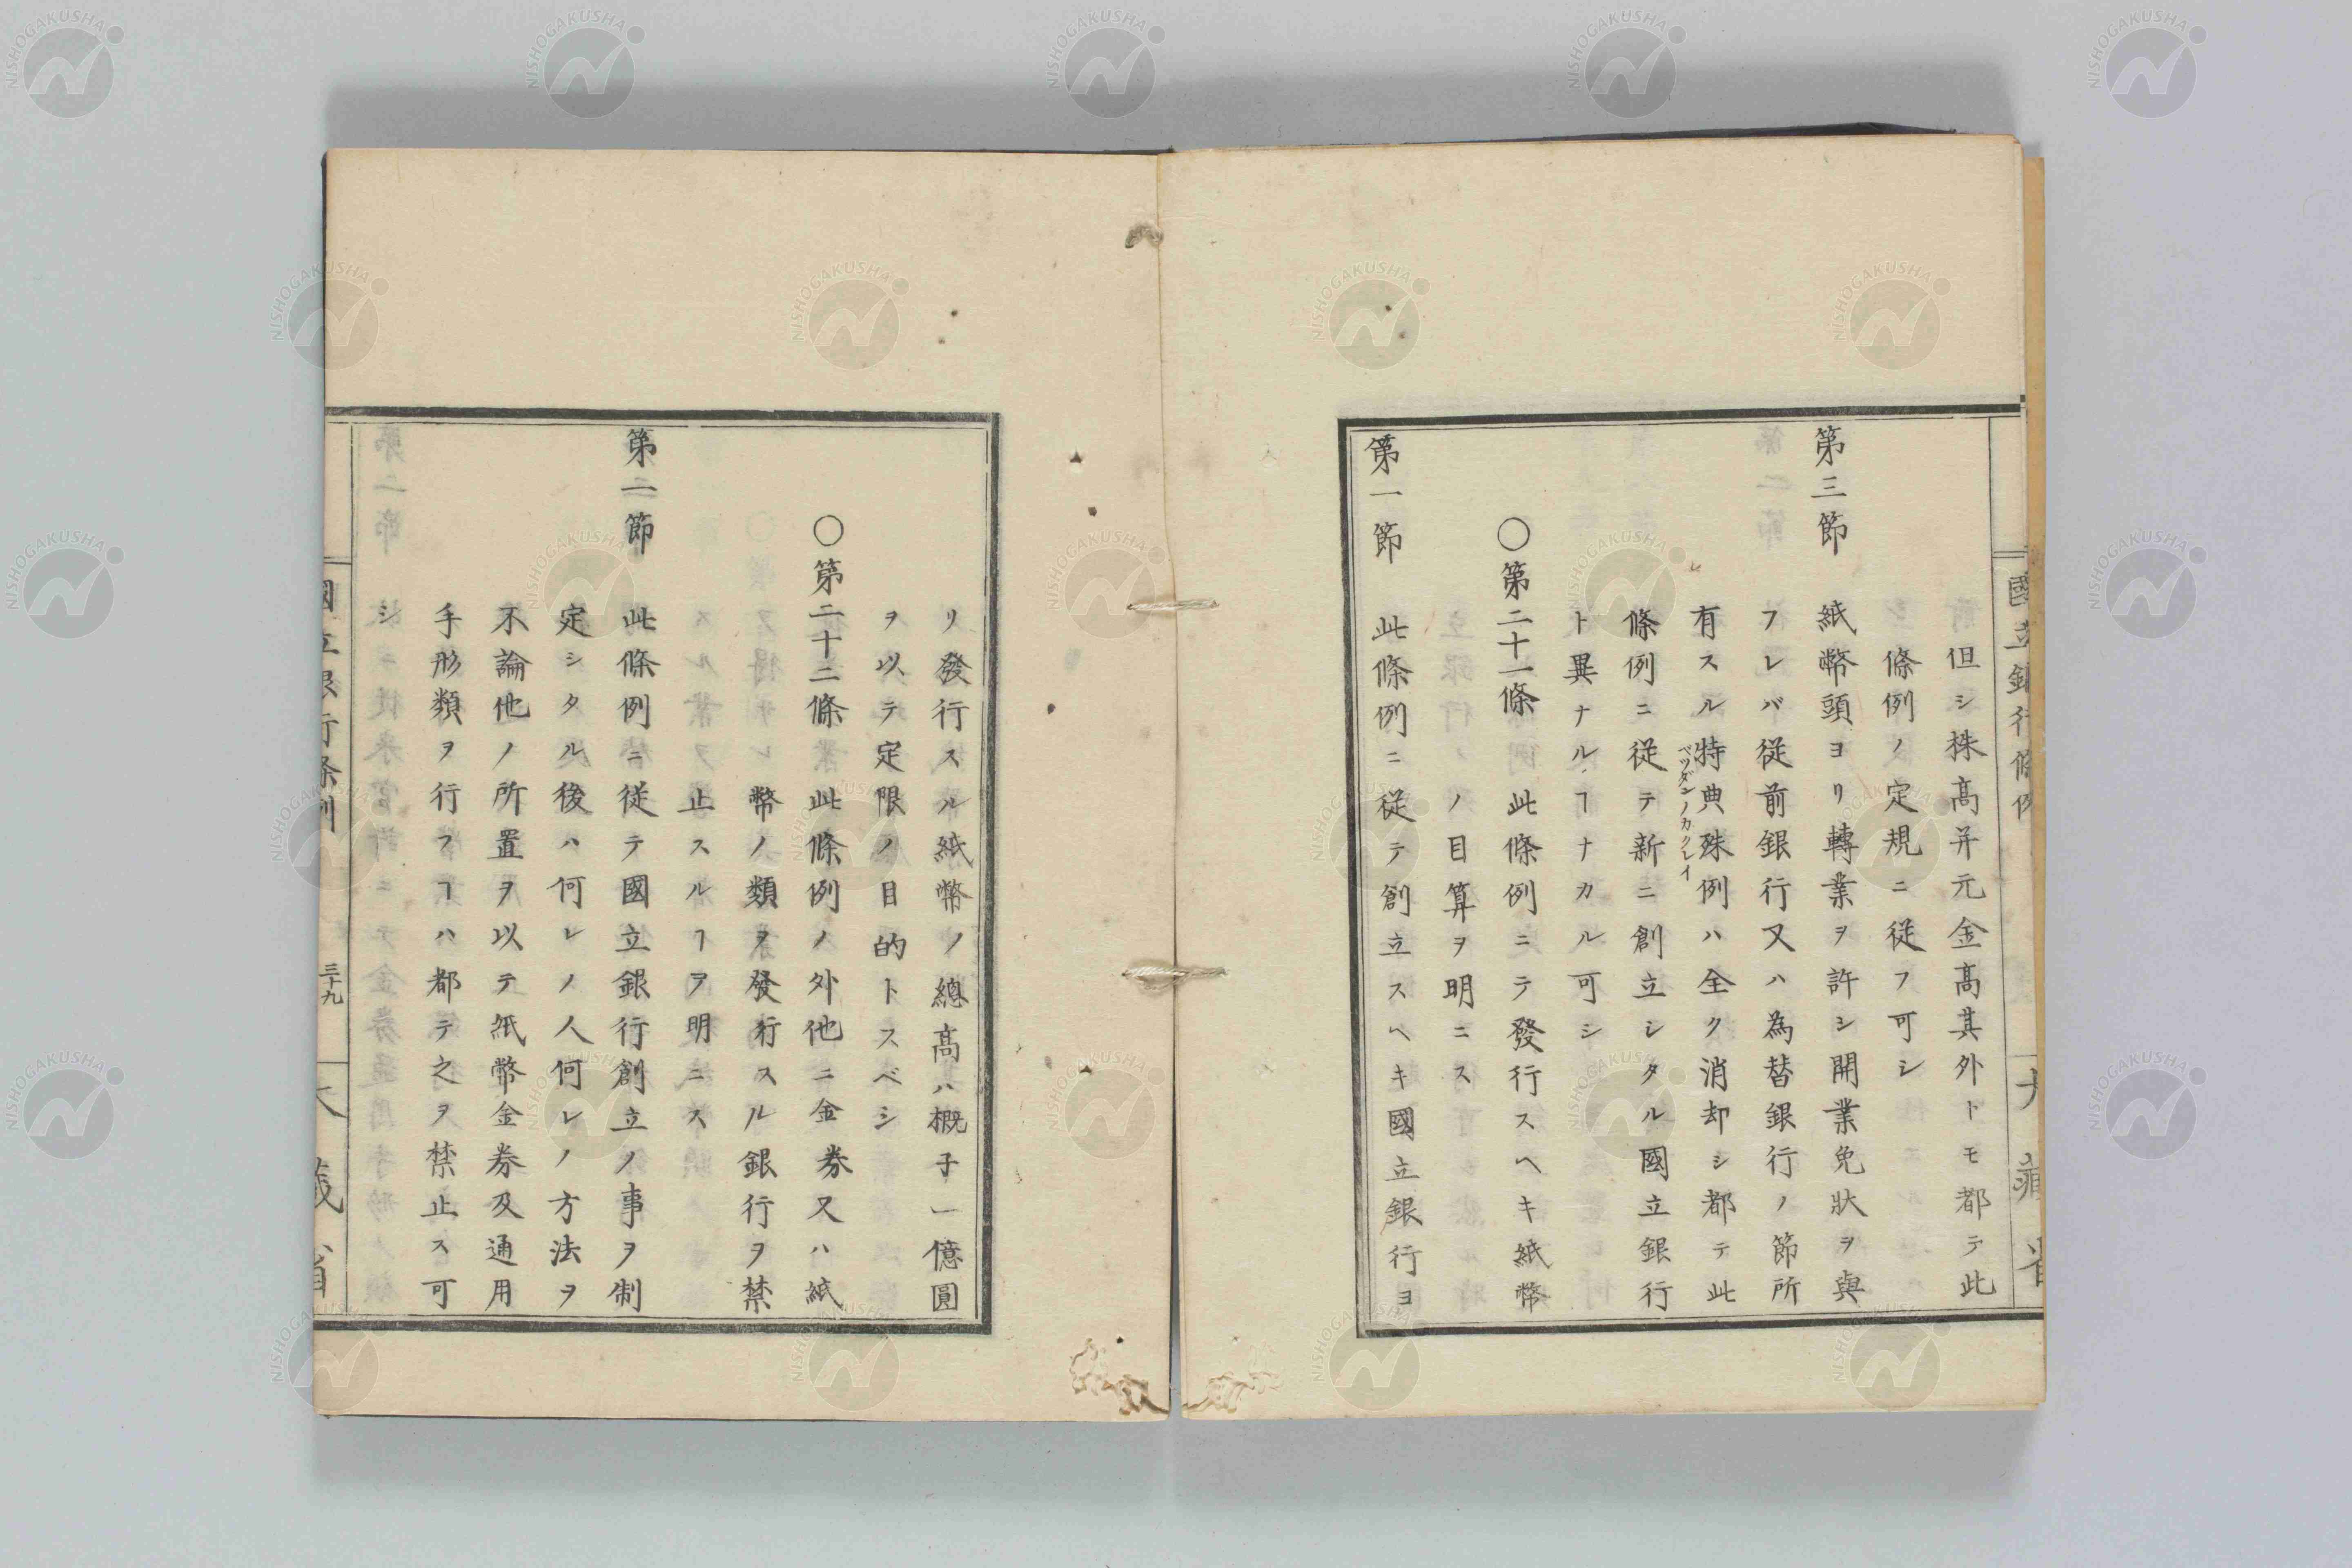 但シ株髙并元金髙其外トモ都テ此
條例ノ定規ニ從フ可シ
第三節 紙幣頭ヨリ轉業ヲ許シ開業免狀ヲ與
フレバ從前銀行又ハ為替銀行ノ節所
有スル特典殊例ハ全ク消却シ都テ此
ベツダンノカクレイ
條例ニ從テ新ニ創立シタル國立銀行
ト異ナルヿナカル可シ
〇第二十一條 此條例ニテ發行スヘキ紙幣
ノ目算ヲ明ニス
第一節 此條例ニ從テ創立スヘキ國立銀行ヨ
リ發行スル紙幣ノ總髙ハ概子一億圓
ヲ以テ定限ノ目的トスベシ
〇第二十二條 此條例ノ外他ニ金券又ハ紙
幣ノ類ヲ發行スル銀行ヲ禁
止スルヿヲ明ニス
第一節 此條例ニ從テ國立銀行創立ノ事ヲ制
定シタル後ハ何レノ人何レノ方法ヲ
不論他ノ所置ヲ以テ紙幣金券及通用
手形類ヲ行フヿハ都テ之ヲ禁止ス可
シ
國立銀行條例
三十九
大藏省
NISHOGAKUSHA